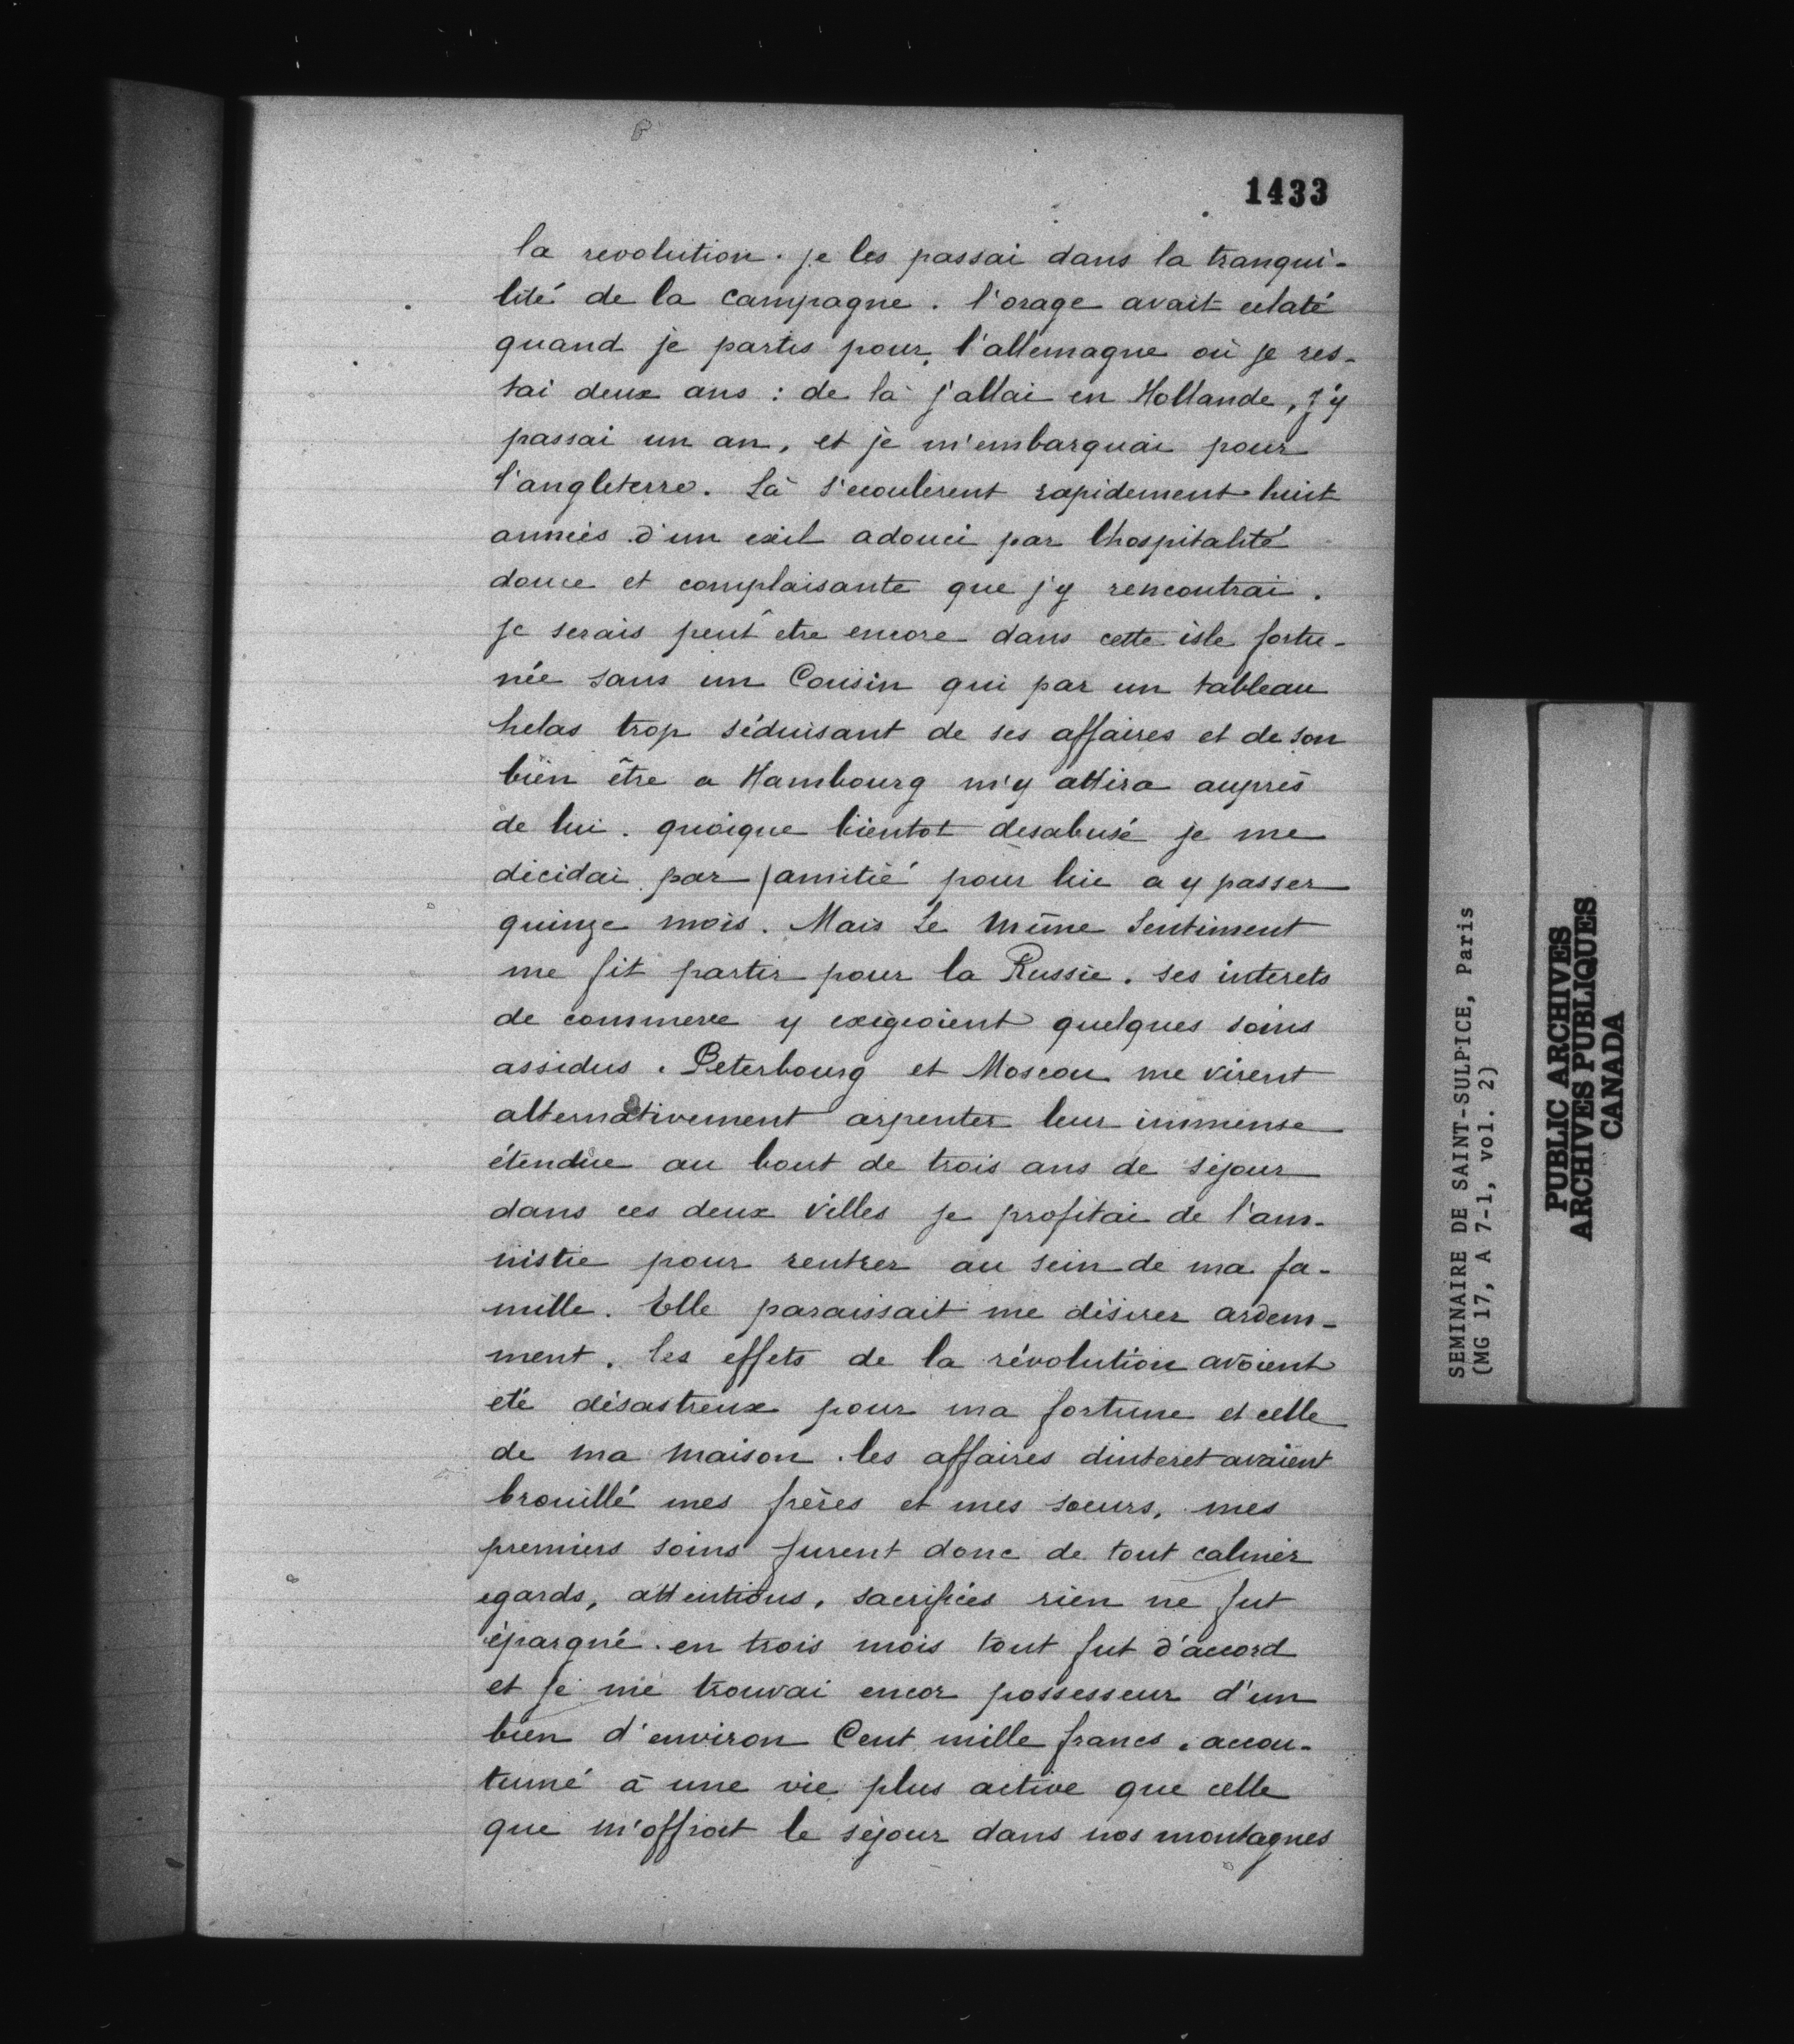 1433
la revolution. je les passai dans la tranqui-
lité de la campagne. l'orage avait eclaté
quand je partis pour l'allemagne où je res-
tai deux ans : de là j'allai en Hollande, j'y
passai un an, et je m'embarquai pour
l'angleterre. Là s'ecoulerent rapidement huit
années d'un exil adouci par lhospitalité
douce et complaisante que j'y rencontrai.
je serais peut être encore dans cette isle fortu-
née sans un Cousin qui par un tableau
helas trop séduisant de ses affaires et de son
bien être a Hambourg m'y attira auprès
de lui. quoique bientot desabusé je me
décidai par amitié pour lui a y passer
quinze mois. Mais le même Sentiment
me fit partir pour la Russie. ses interets
de commerce y exigeoient quelques soins
assidus. Peterbourg et Moscou me virent
alternativement arpenter leur immense
étendue au bout de trois ans de séjour
dans ces deux villes je profitai de l'am-
nistie pour rentrer au sein de ma fa-
mille. Elle paraissait me désirer ardem-
ment. les effets de la révolution avoient
été désastreux pour ma fortune et celle
de ma maison. les affaires dinteret avaient
brouillé mes frères et mes soeurs, mes
premiers soins furent donc de tout calmer
egards, attentions, sacrifices rien ne fut
épargné. en trois mois tout fut d'accord
et je me trouvai encor possesseur d'un
bien d'environ Cent mille francs. accou-
tumé à une vie plus active que celle
que m'offrait le séjour dans nos montagnes
SEMINAIRE DE SAINT-SULPICE, Paris
(MG 17, A 7-1, vol. 2)
PUBLIC ARCHIVES
ARCHIVES PUBLIQUES
CANADA